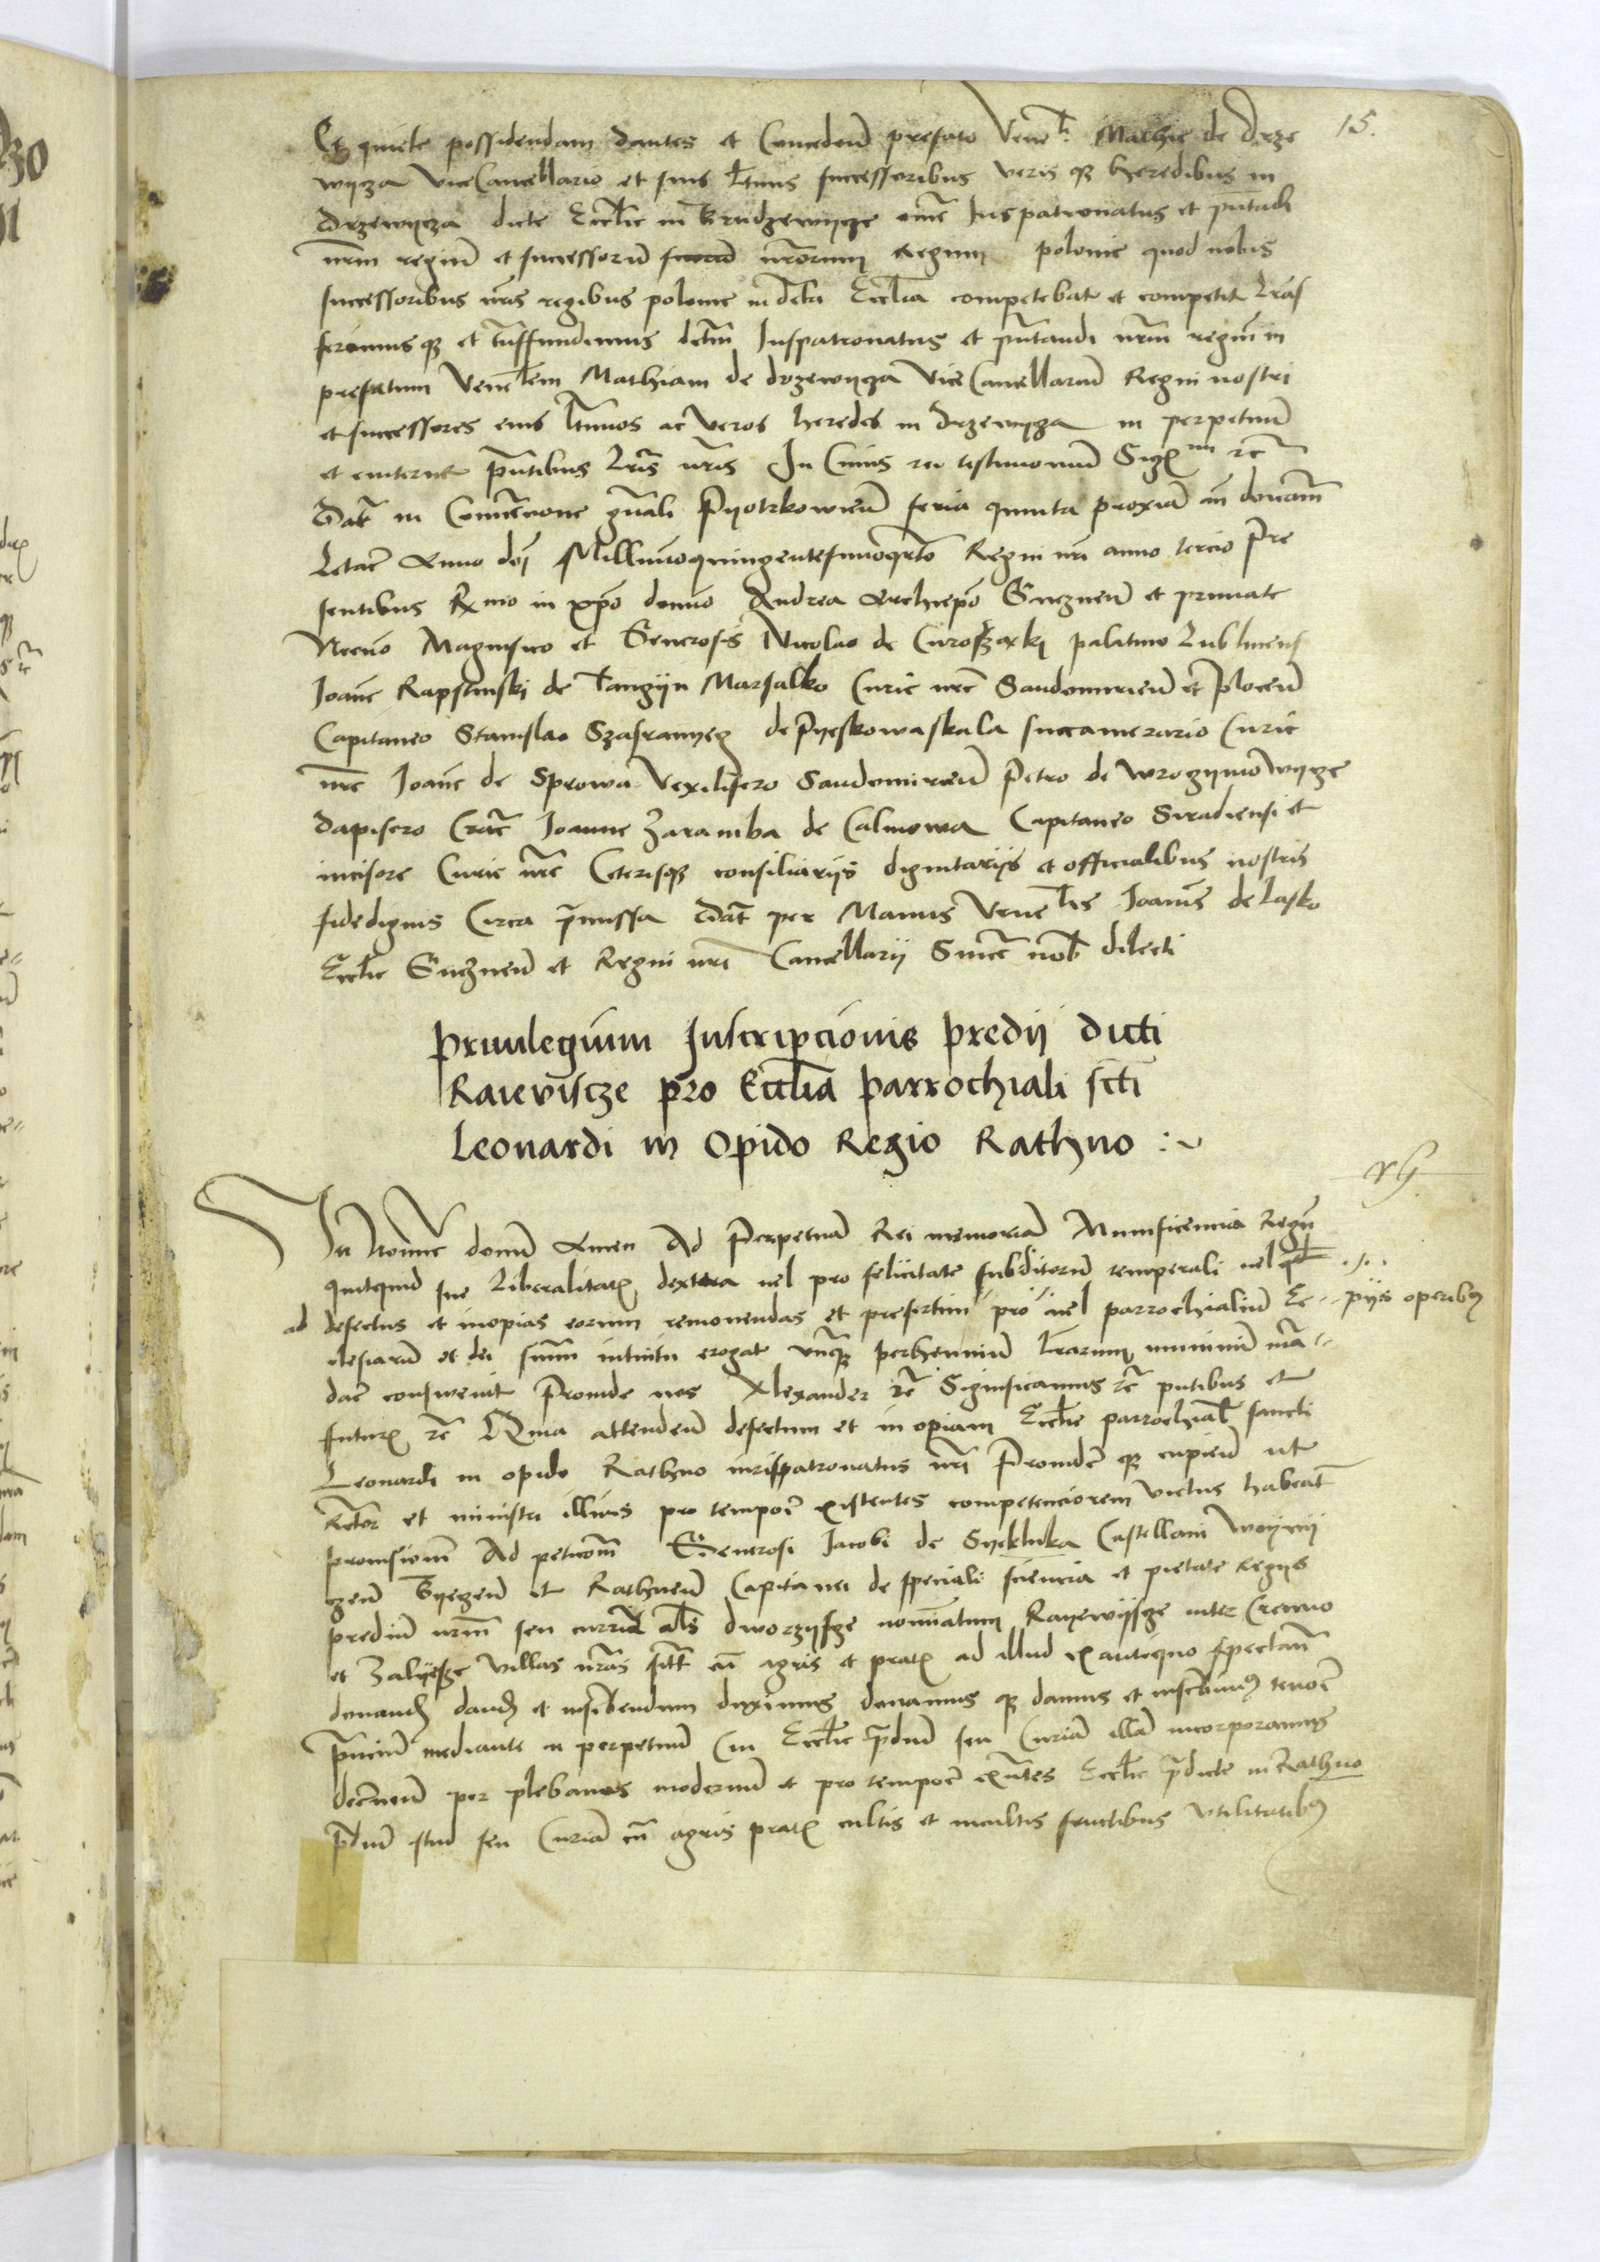 15.
Et quiete possidendam dantes et Conceden̄ prefato Venel̄i Mathie de Drze
wycza ViceCancellario et suis l̄timis successoribus veris qz heredibus in
Drzewycza dicte Eccl̄ie in Grudzewycze om̄e Juspatronatus et pn̄tandi
nr̄m regiu̅ et successoru̅ nr̄orum Regum polonie quod nobis
successoribus nr̄is regibus polonie in dicta Eccl̄ia competebat et competit Tras
ferimus qz et tn̄sfundimus dictu̅ Juspatronatus et pn̄tandi nr̄m regiu̅ in
prefatum Venel̄em Mathiam de drzewycza ViceCancellariu̅ Regni nostri
et successores eius l̄timos ac Veros heredes in drzewycza in perpetuu̅
et eviterne pn̄tibus lr̄is nr̄is In Cuius rei testimoniu̅ Sigm̄ rc̄
Dat̄ in Conven̄cione gn̄ali Pyotrkowien̄ feria quinta proxīa an̄ donam̄
Letar̄ Anno dn̄i Millimoquingentesimoqrto Regni nr̄i anno tercio Pre
sentibus Rx̄mo in xp̄o domino Andrea Archiepō Gnezneñ et primate
Necn̄o Magnifico et Generosis Nicolao de Curoszwaky palatino Lublinens̄
Joan̄e Rapstinski de Tanczyn Marsalko Curie nr̄e Sandomirien̄ et Plocen̄
Capitaneo Stanislao Szafranyecz de Pyeskowaskala succamerario Curie
nr̄e Joan̄e de Sprowa Vexilifero Sandomirien̄ Petro de Wrocymowycze
dapifero Crac̄ Joanne Zaramba de Calinowa Capitaneo Siradiensi et
incisore Curie nr̄e Ceterisqz consiliariis dignitariis et officialibus nostris
fidedignis Circa p̄missa Dat̄ per Manus Venel̄is Joan̄is de Lasko
Eccl̄ie Gneznen̄ et Regni nr̄i Cancellarii Sincere nob̄ dilecti
Privilegium Inscripcionis predii dicti
Raieviscze pro Eccl̄ia parrochiali sc̄ti
Leonardi in Opido Regio Rathno :~
In No̅ie domini Amen Ad Perpetuam Rei memoriam Munificencia Regu̅
quitquid sue Liberalitatis dextera vel pro felicitate subditoru̅ temporali vel
ad defectus et inopias eorum removendas et presertim pro vel parrochialiu̅ Ec
piis operibus
clesiaru̅ et dei su̅mi intuitu erogat vn̄qz perhenniu̅ lr̄arum muniu̅ man
dare consuevit Proinde nos Alexander rc̄ Significamus rc̄ pn̄tibus et
futuris rc̄ Quia attenden̄ defectum et inopiam Eccl̄ie parrochial̄ sancti
Leonardi in opido Rathno iurispatronatus nr̄i Proinde qz cupien̄ ut
Rector et ministri illius pro tempore existentes competenciorem victus habeat̄
provisione̅ Ad peticiom̄ Generosi Jacobi de Syekluka Castellani Woyny
czen̄ Gyezen̄ et Rathnen̄ Capitanei de speciali sciencia et pietate Regiis
prediu̅ nr̄m seu curia̅ al̄s dworzyscze nominatum Rayewyscze inter Cremno
et Zalyescze villas nr̄as sitā cu̅ agris et pratis ad illud ex antiquo spectan̄
donand̄ dand̄ et inscribendum duximus donamus qz damus et inscribimus tenore
pn̄ciu̅ mediante in perpetuu̅ Cui Eccl̄ie p̄diu̅ seu Curia̅ illa̅ incorporamus
decernen̄ per plebanos modernu̅ et pro tempore exn̄tes Eccl̄ie p̄dicte in Rathno
p̄diu̅ istud seu Curia̅ cu̅ agris pratis cultis et incultis fructibus Utilitatibus